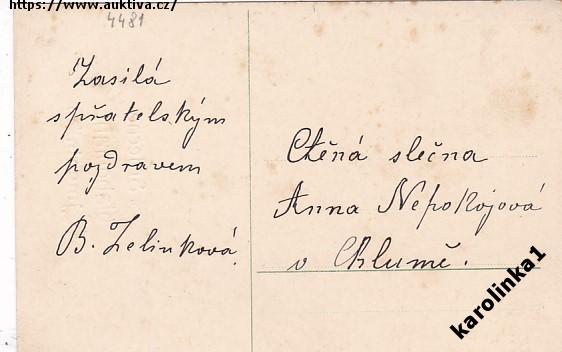 https://www.auktiva.cz/
4481
Zasílá
spřatelským
pozdravem
B. Zelinková.
Ctěná slečna
Anna Nepokojová
v Chlumě.
karolinka1